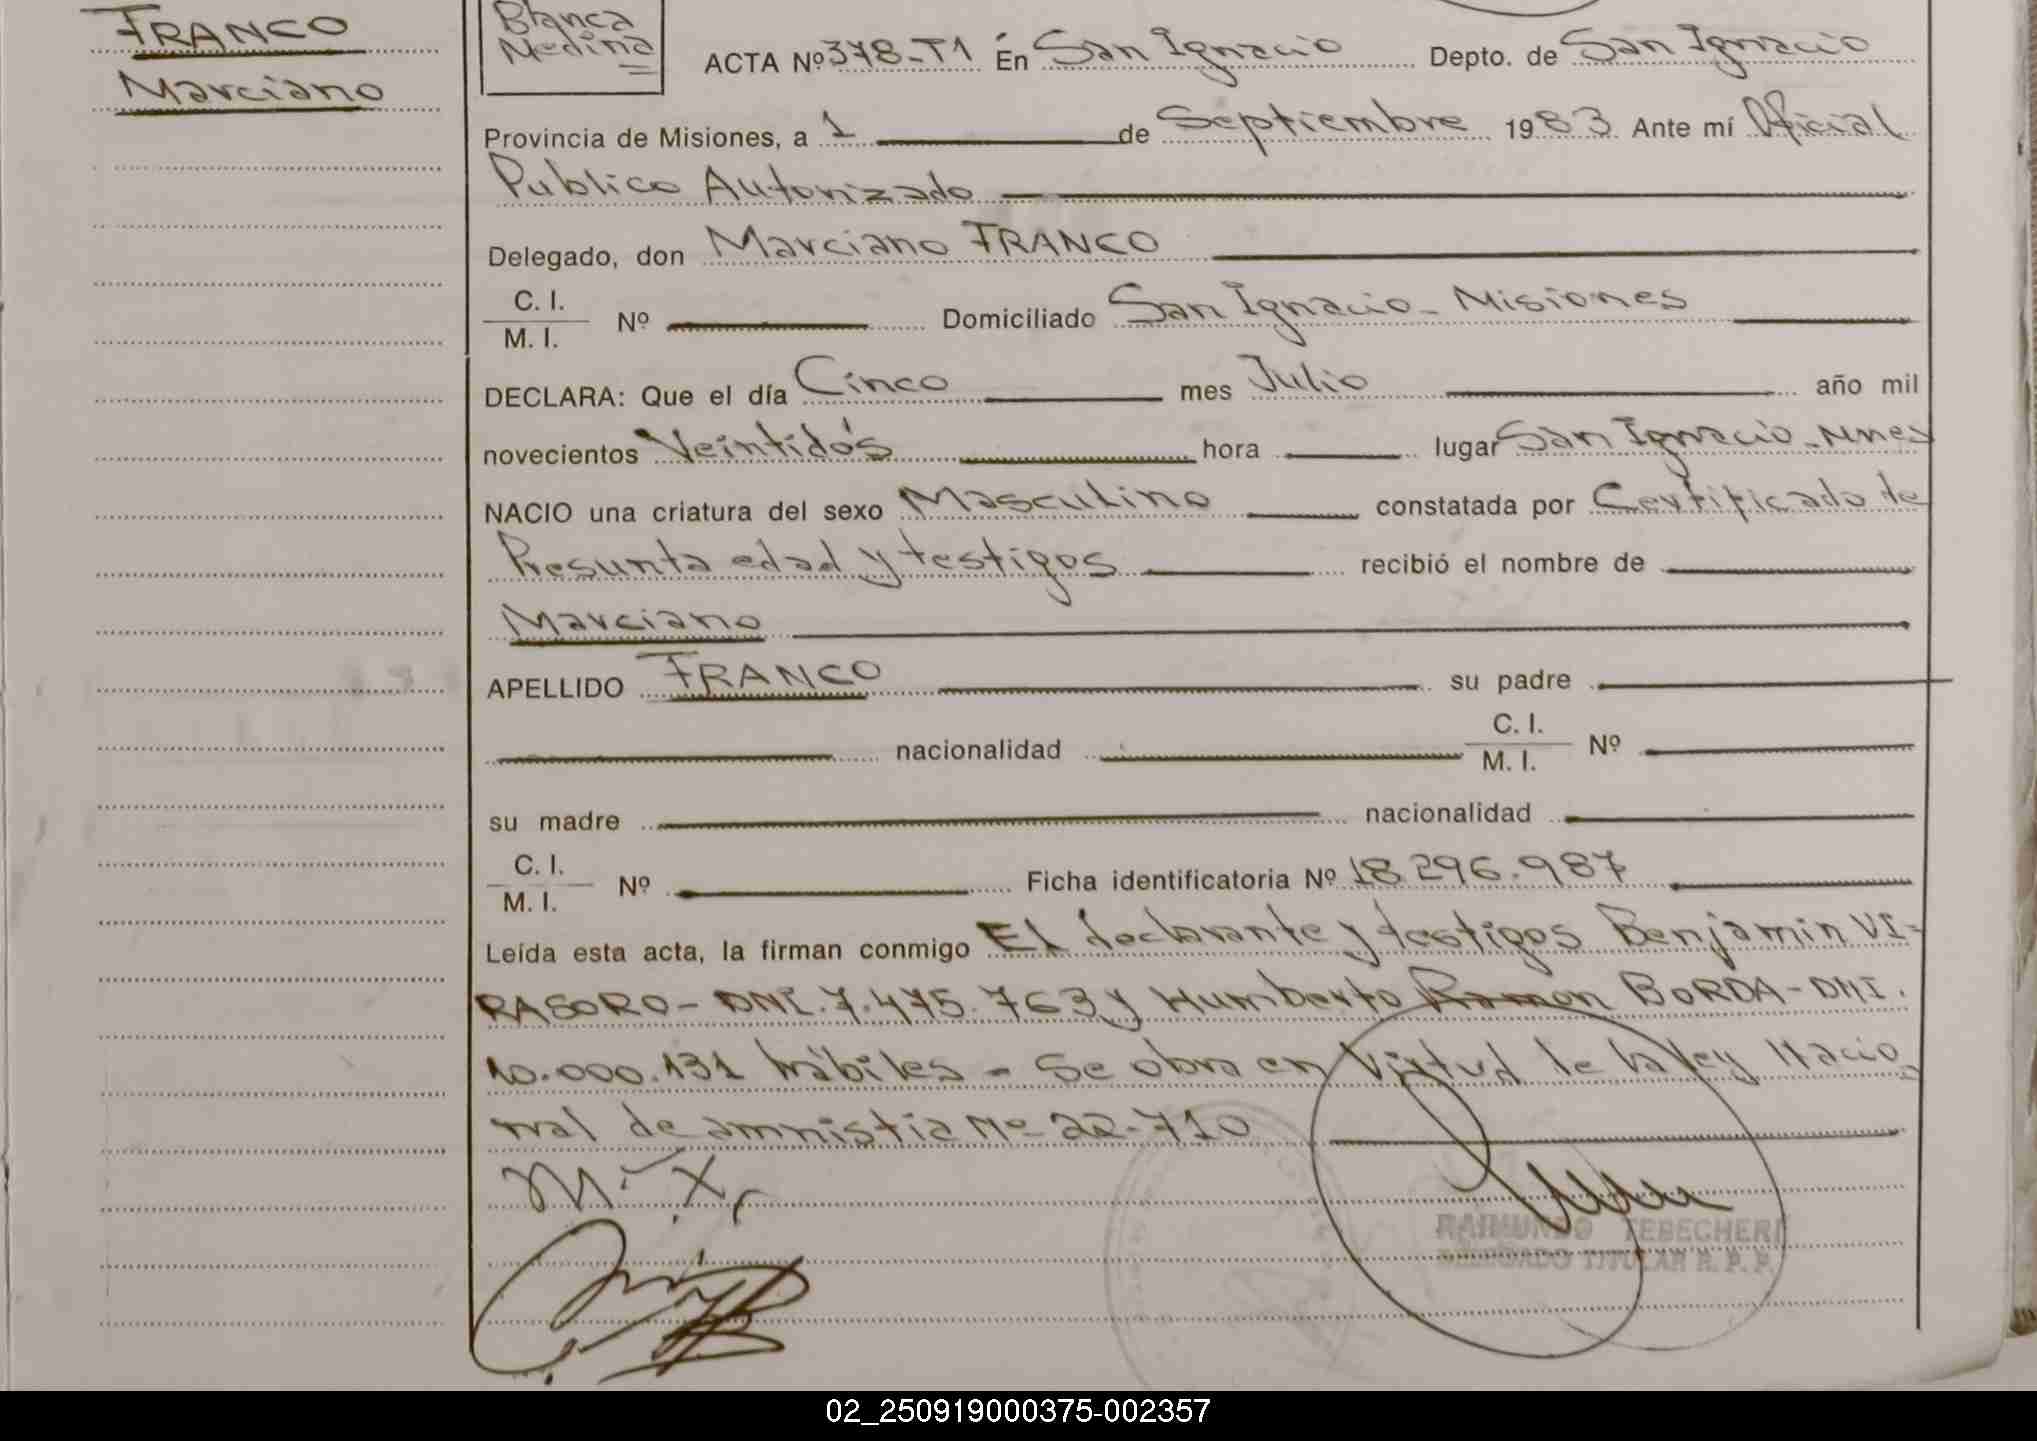 FRANCO
Marciano
Blanca
Medina
ACTA Nº 378-T1 En San Ignacio Depto. de San Ignacio
Provincia de Misiones, a 1 de Septiembre 1983 Ante mí Oficial
Publico Autorizado
Delegado, don Marciano FRANCO
C. I.
M. I. Nº Domiciliado San Ignacio - Misiones
DECLARA: Que el día Cinco mes Julio año mil
novecientos Veintidós hora lugar San Ignacio - Mnes
NACIO una criatura del sexo Masculino constatada por Certificado de
Presunta edad y testigos recibió el nombre de
Marciano
APELLIDO FRANCO su padre
nacionalidad C. I.
M. I. Nº
su madre nacionalidad
C. I.
M. I. Nº Ficha identificatoria Nº 18.296.987
Leída esta acta, la firman conmigo El declarante y testigos Benjamin VI-
RASORO - DNI. 7.475.763 y Humberto Ramon BORDA - DNI.
10.000.131 hábiles - Se obra en Virtud de la Ley Nacio
nal de amnistia Nº 22.710
RAIMUNDO TEBECHERI
DELEGADO TITULAR R. P. P.
02_250919000375-002357